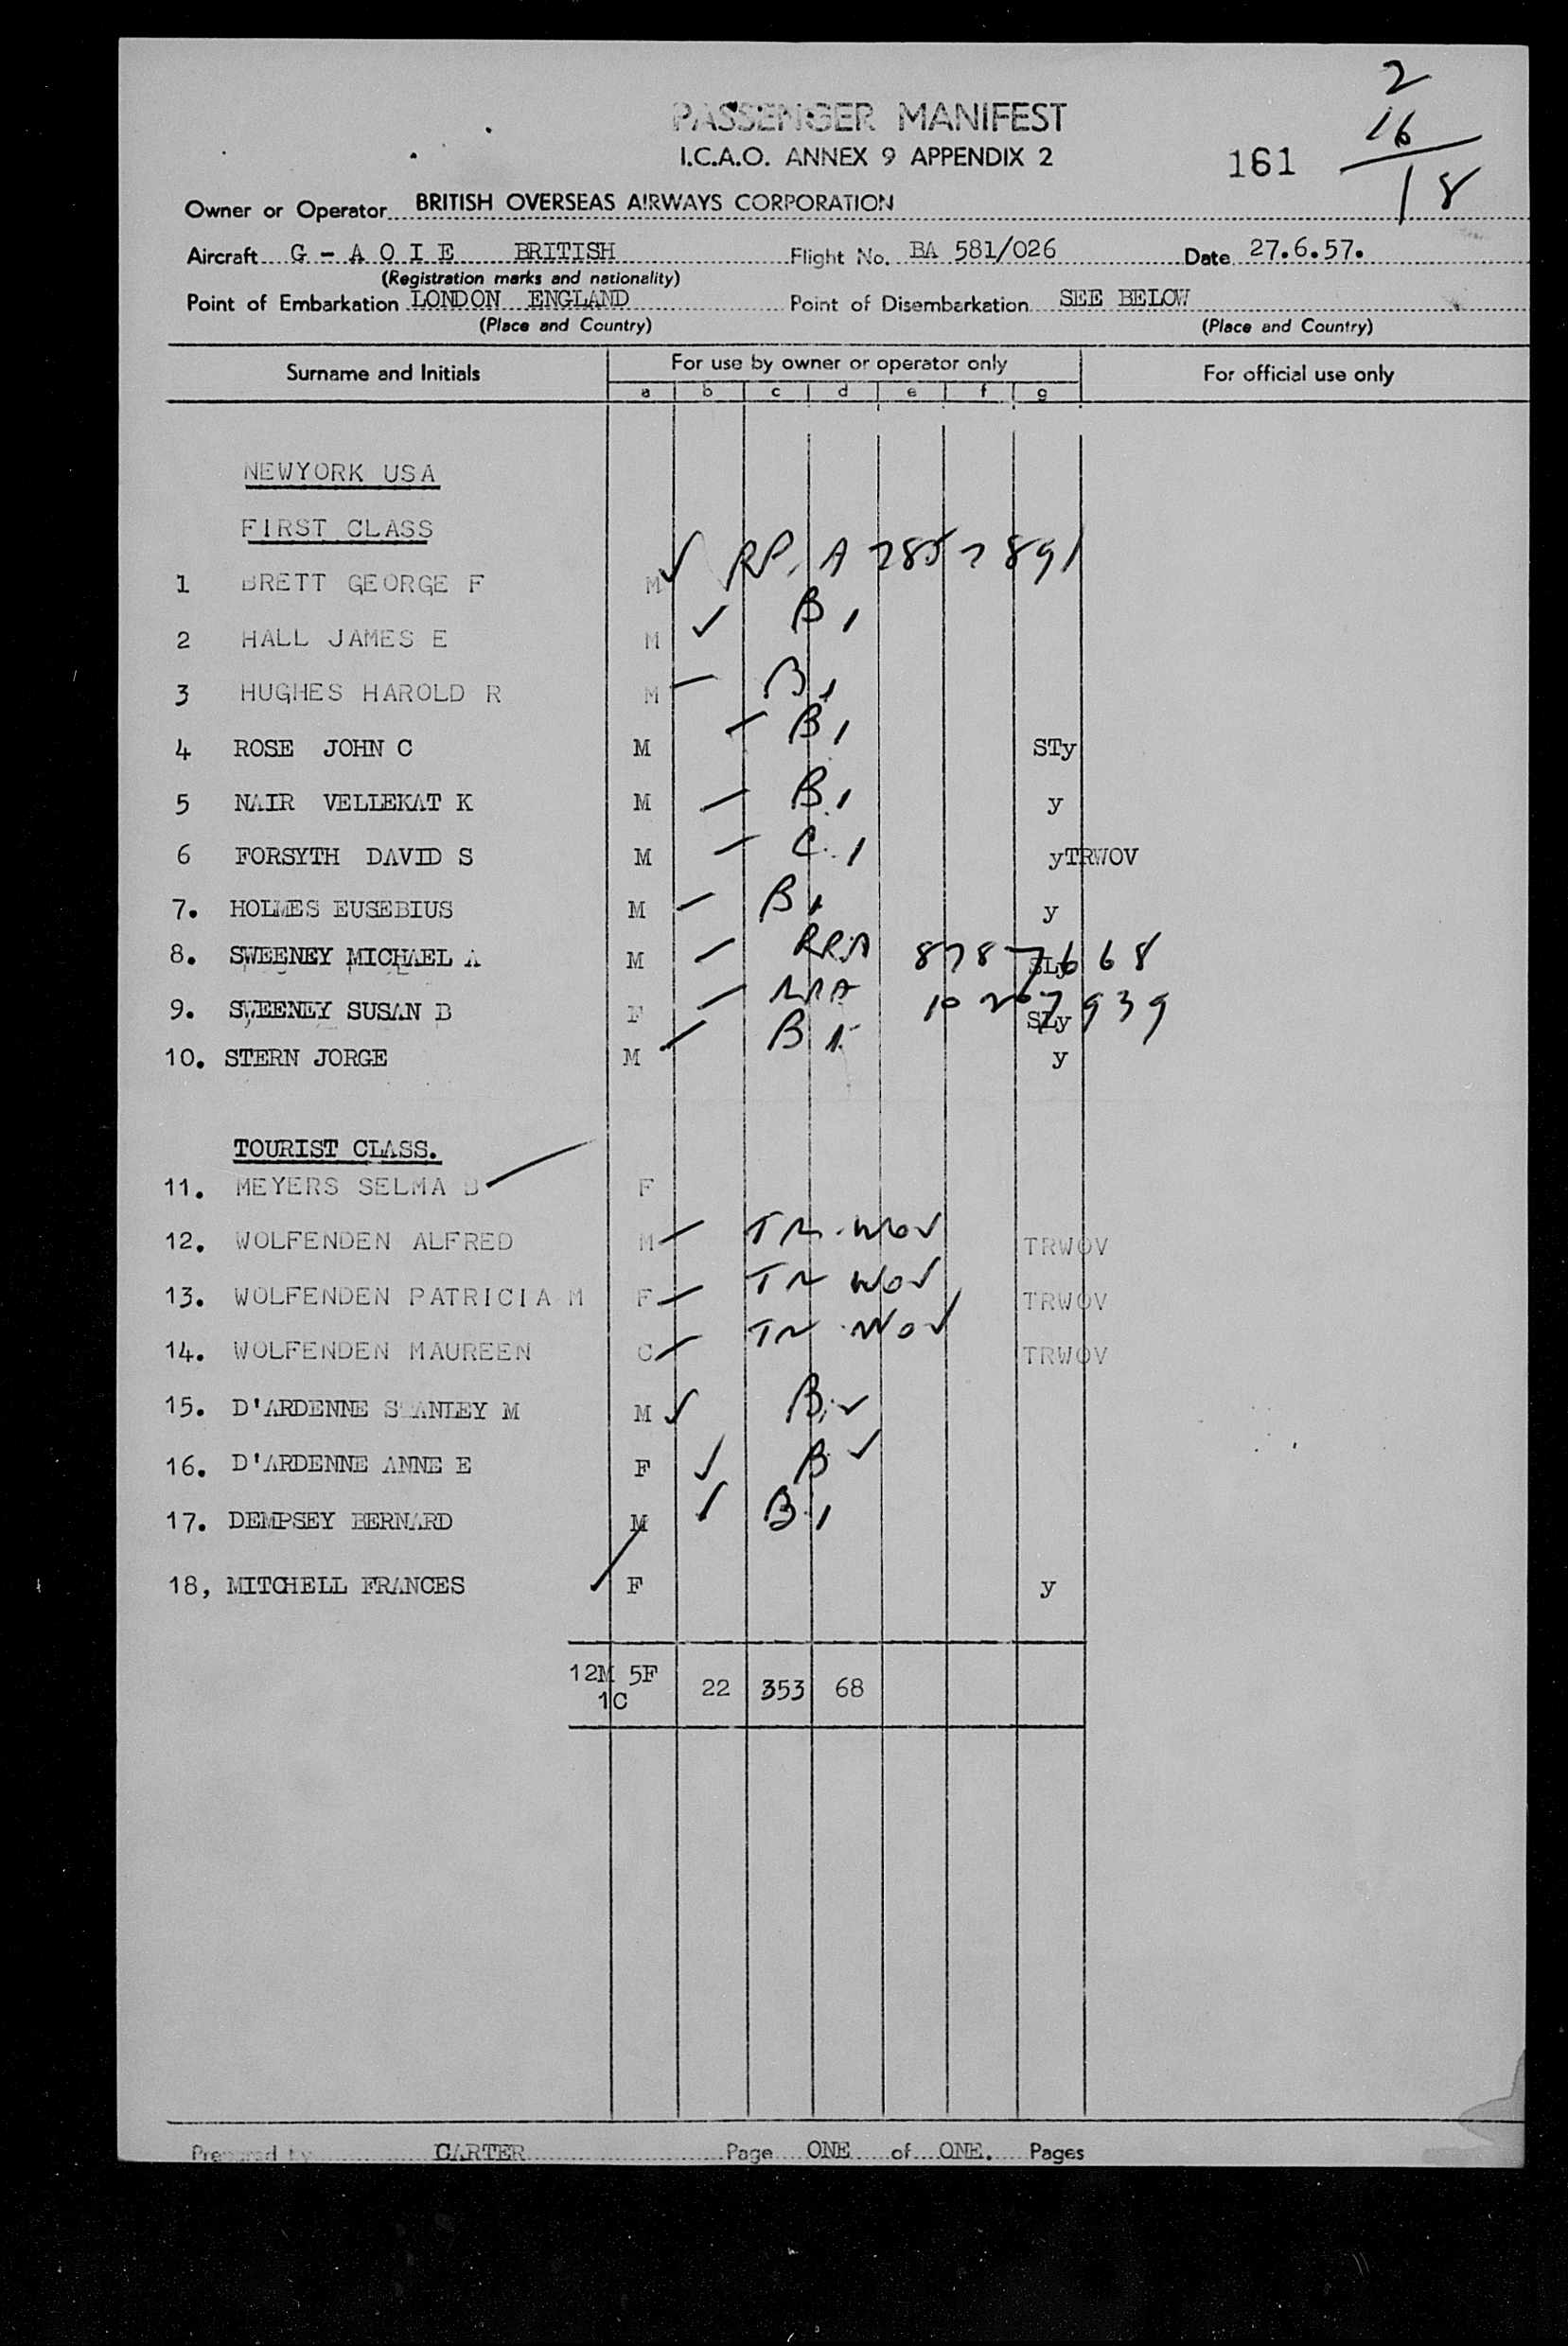 2
16
18
PASSENGER MANIFEST
I.C.A.O. ANNEX 9 APPENDIX 2
161
Owner or Operator BRITISH OVERSEAS AIRWAYS CORPORATION
Aircraft G - A O I E BRITISH Flight No. BA 581/026 Date 27.6.57.
(Registration marks and nationality)
Point of Embarkation LONDON ENGLAND Point of Disembarkation SEE BELOW
(Place and Country) (Place and Country)
Surname and Initials For use by owner or operator only For official use only
a b c d e f g
NEWYORK USA
FIRST CLASS
1 BRETT GEORGE F M ✓ RP. A 7857891
2 HALL JAMES E M ✓ B1
3 HUGHES HAROLD R M B1
4 ROSE JOHN C M B1 STy
5 NAIR VELLEKAT K M B1 y
6 FORSYTH DAVID S M C.1 yTRWOV
7. HOLMES EUSEBIUS M B1 y
8. SWEENEY MICHAEL A M RPA 8787668 SLy
9. SWEENEY SUSAN B F 10207939 SLy
10. STERN JORGE M B1 y
TOURIST CLASS.
11. MEYERS SELMA B F
12. WOLFENDEN ALFRED M TR.WOV TRWOV
13. WOLFENDEN PATRICIA M F TR WOV TRWOV
14. WOLFENDEN MAUREEN C TR WOV TRWOV
15. D'ARDENNE STANLEY M M ✓ B ✓
16. D'ARDENNE ANNE E F ✓ B ✓
17. DEMPSEY BERNARD M ✓ B1
18, MITCHELL FRANCES F y
12M 5F 22 353 68
1C
Prepared by CARTER Page ONE of ONE. Pages